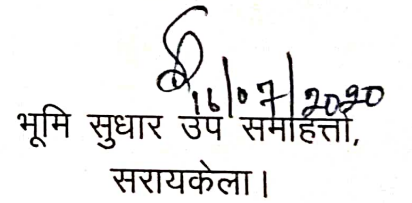 16/07/2020
भूमि सुधार उप समाहर्त्ता,
सरायकेला।